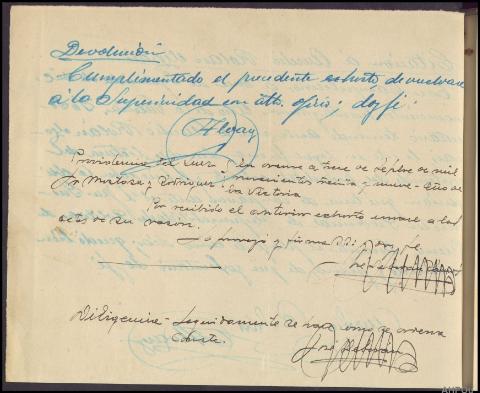 Devolución
Cumplimentado el precedente exhorto devuelvase
á la Superioridad con attº oficio; doy fé:
Providencia del Juez
Sr Montoso y Rodriguez
En Orense a trece de Septbre de mil
novecientos treinta y nueve - Año de
la Victoria
Por recibido el anterior exhorto unase a los
autos de su razón.
Lo provejo y firma S.S. doy fe.
Diligencia - Seguidamente se hace como se ordena
Conste.